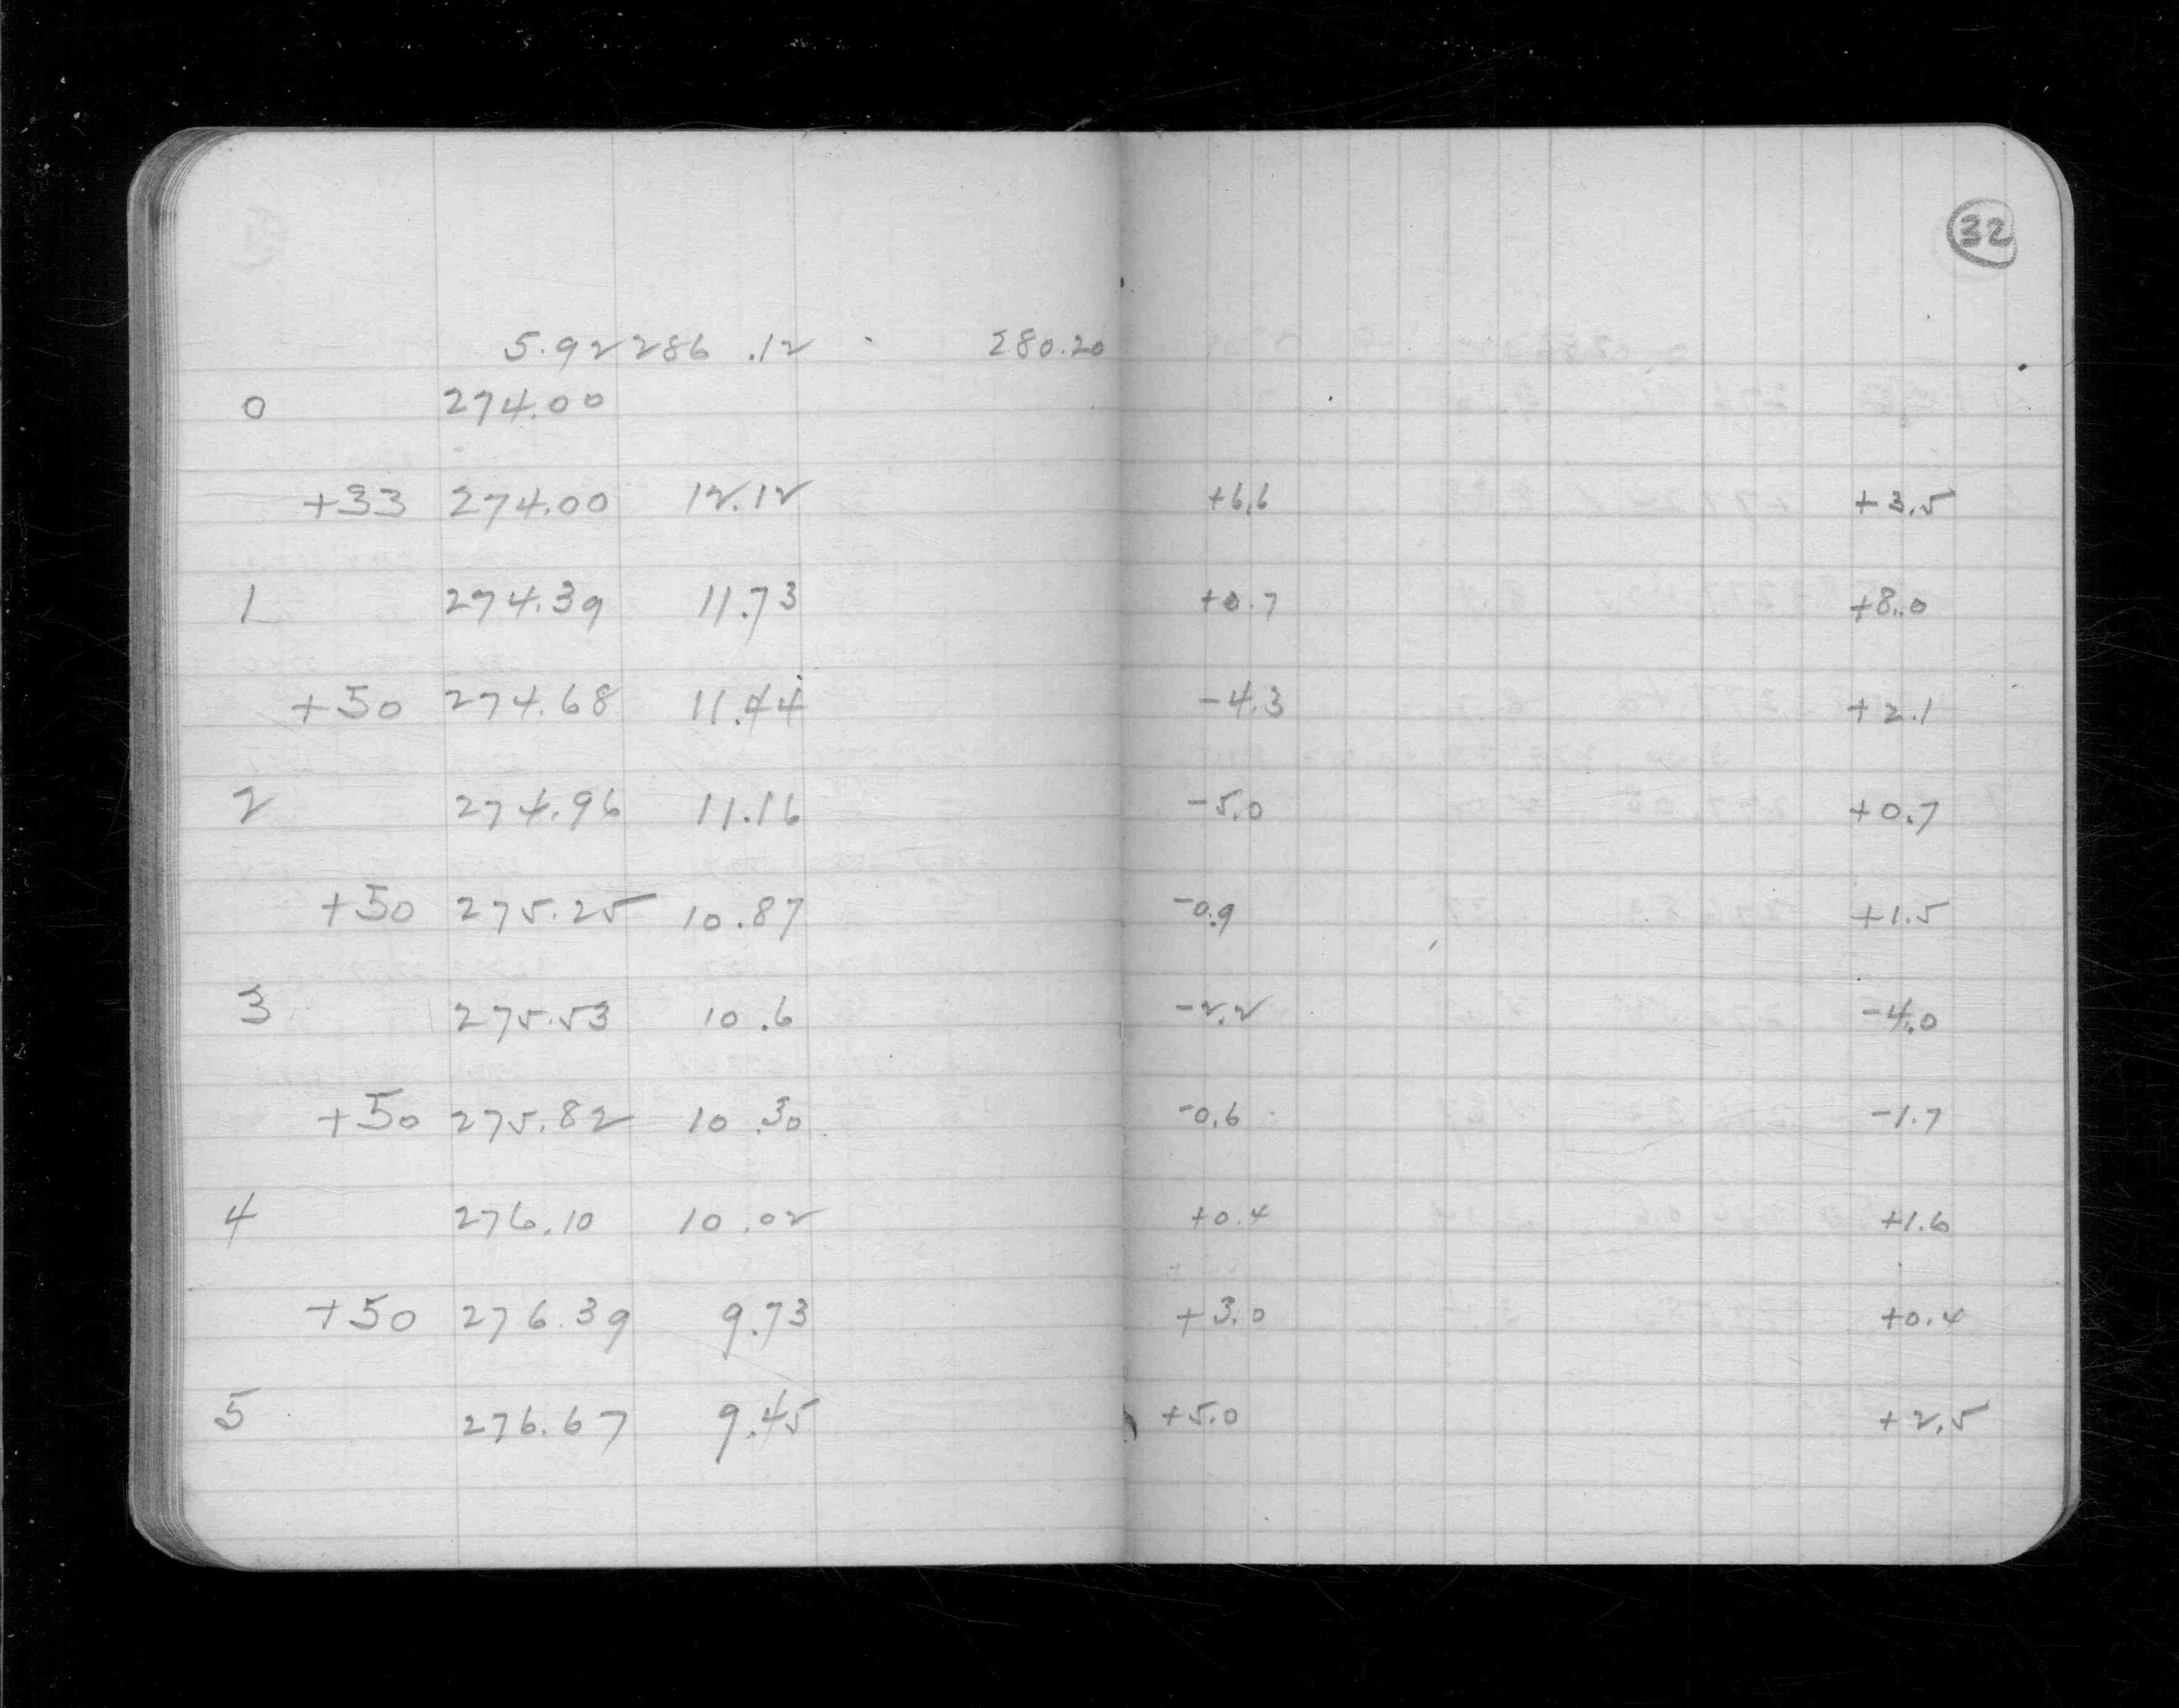 32
5.92 286.12 280.20
0 274.00
+33 274.00 12.12 +6.6 +3.5
1 274.39 11.73 +0.7 +8.0
+50 274.68 11.44 -4.3 +2.1
2 274.96 11.16 -5.0 +0.7
+50 275.25 10.87 -0.9 +1.5
3 275.53 10.6 -2.2 -4.0
+50 275.82 10.30 -0.6 -1.7
4 276.10 10.02 +0.4 +1.6
+50 276.39 9.73 +3.0 +0.4
5 276.67 9.45 +5.0 +2.5